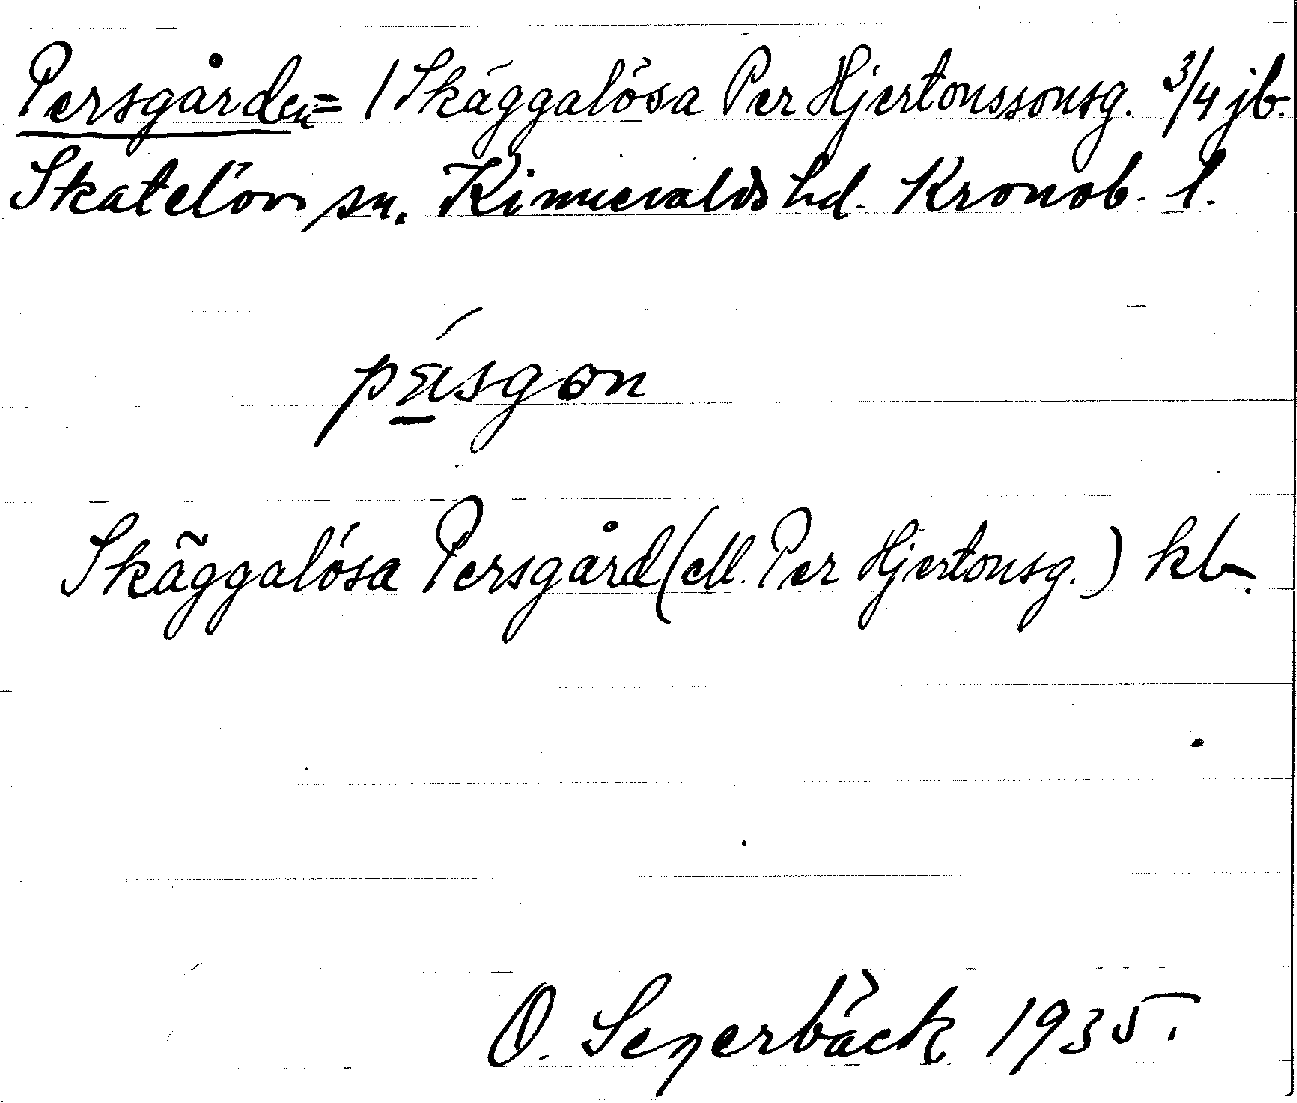 Persgården = 1 Skäggalösa Per Hjertonssonsg. 3/4 jb.
Skatelöv sn. Kinnevalds hd. Kronob. l.
Skäggalösa Persgård (ell. Per Hjertonsg.) kb.
O. Segerbäck 1935.